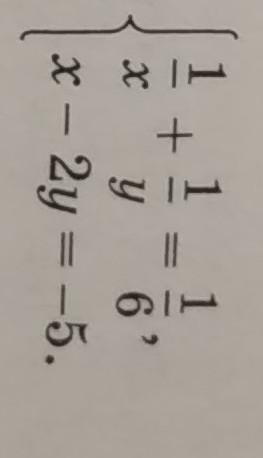 1/x + 1/y = 1/6,
x − 2y = −5.